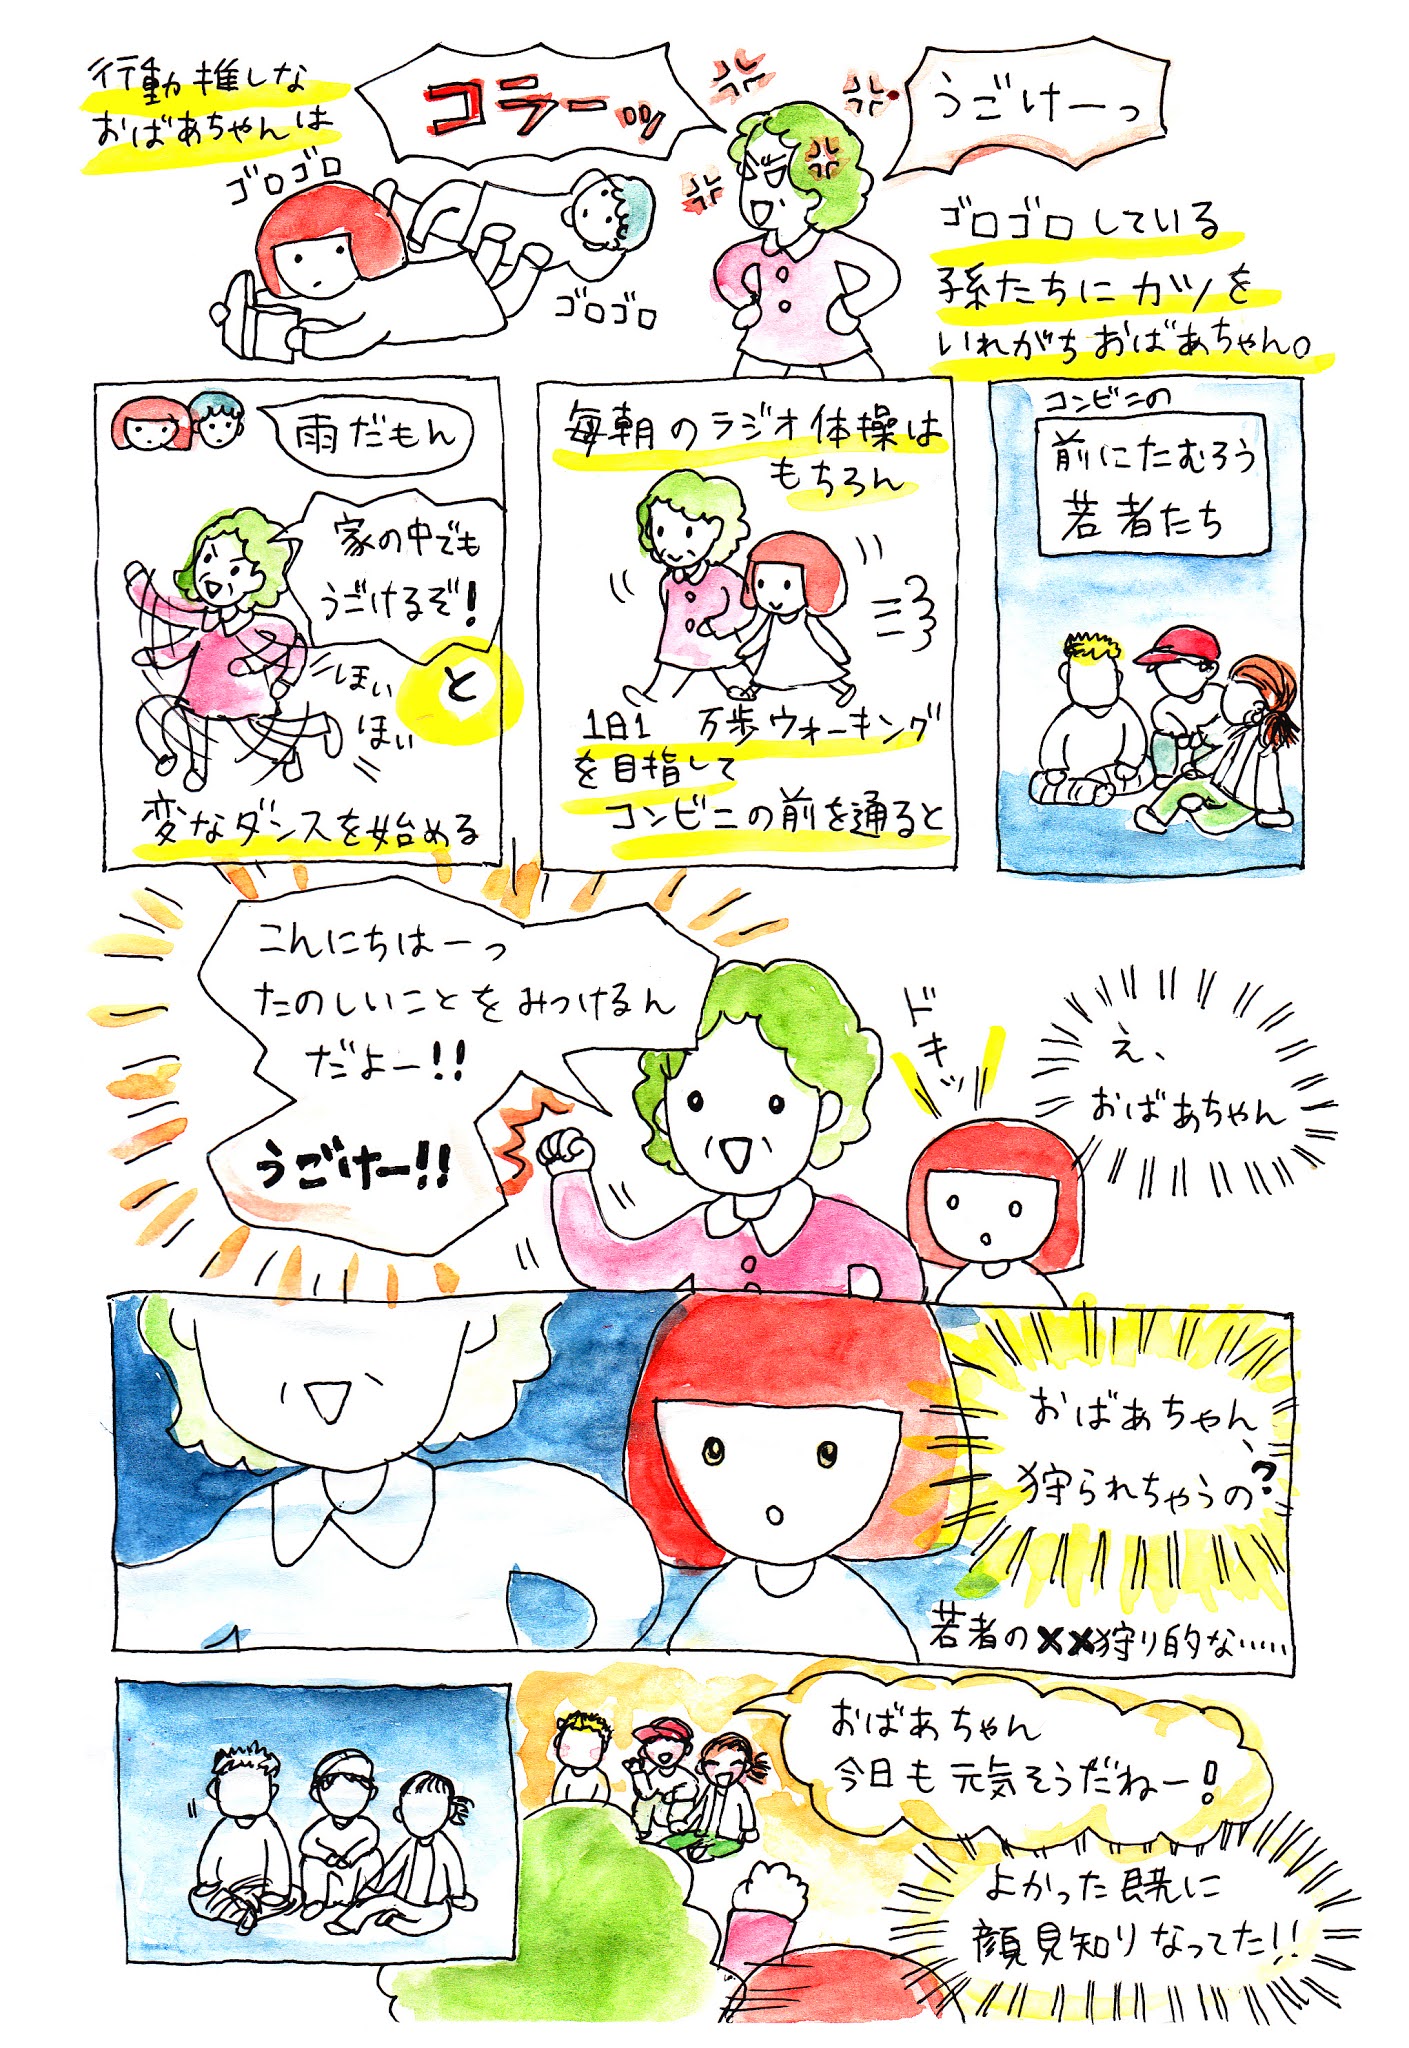 行動推しな
おばあちゃんは
コラーッ
うごけーっ
ゴロゴロ
ゴロゴロ
ゴロゴロしている
孫たちにカツを
いれがちおばあちゃん。
雨だもん
家の中でも
うごけるぞ!
ほい
ほい
と
変なダンスを始める
毎朝のラジオ体操は
もちろん
1日1 万歩ウォーキング
を目指して
コンビニの前を通ると
コンビニの
前にたむろう
若者たち
こんにちはーっ
たのしいことをみつけるん
だよー!!
うごけー!!
ドキッ
え、
おばあちゃん
おばあちゃん、
狩られちゃうの?
若者の××狩り的な……
おばあちゃん
今日も元気そうだねー!
よかった既に
顔見知りなってた!!